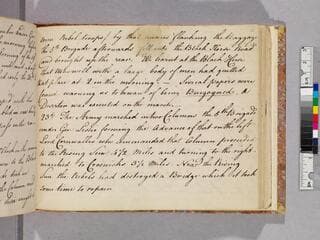 some Rebel troops) by that means flanking the baggage
the 5th Brigade afterwards fell into the Black Horse Road
and brought up the rear. We learnt at the Black Horse
that Maxwell with a large body of men had quitted
that place at 2 in the morning. — Several papers were
found warning us to beware of being Burgoyned. A
Deserter was executed on the march.
23d The Army marched in two Columns the 5th Brigade
under Gen Leslie forming the advance of that on the left
Lord Cornwallis who commanded that column proceeded
to the Rising Sun 4½ Miles and turning to the right
marched to Crosswicks 3½ Miles. Near the Rising
Sun the Rebels had destroyed a Bridge which it took
some time to repair